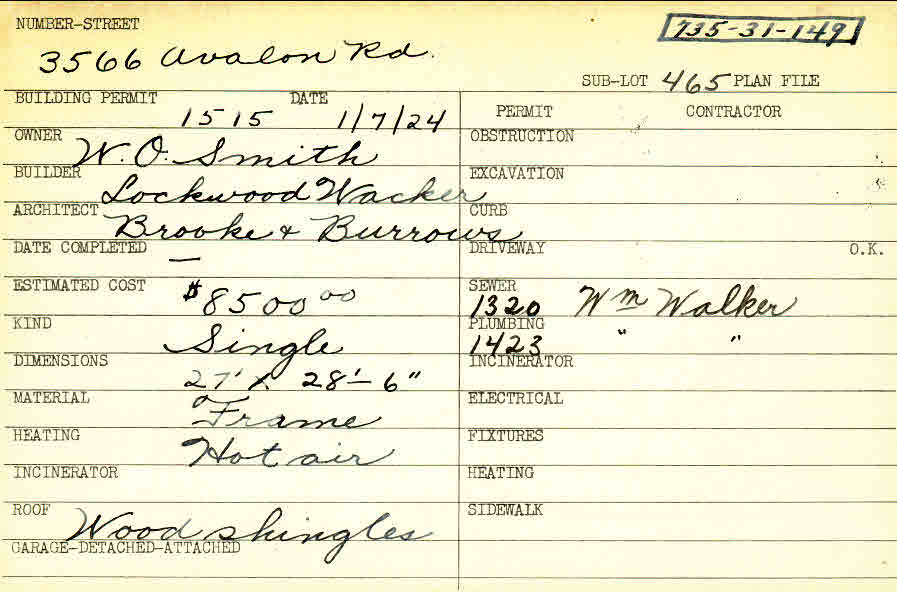 NUMBER-STREET
735-31-149
3566 Avalon Rd.
SUB-LOT 465 PLAN FILE
BUILDING PERMIT 1515 DATE 1/7/24
PERMIT CONTRACTOR
OWNER W. O. Smith
OBSTRUCTION
BUILDER Lockwood Wacker
EXCAVATION
ARCHITECT Brooke & Burrows
CURB
DATE COMPLETED —
DRIVEWAY O.K.
ESTIMATED COST $8500 00
SEWER 1320 Wm Walker
KIND Single
PLUMBING 1423 " "
DIMENSIONS 27' x 28'-6"
INCINERATOR
MATERIAL Frame
ELECTRICAL
HEATING Hot air
FIXTURES
INCINERATOR
HEATING
ROOF Wood shingles
SIDEWALK
GARAGE-DETACHED-ATTACHED